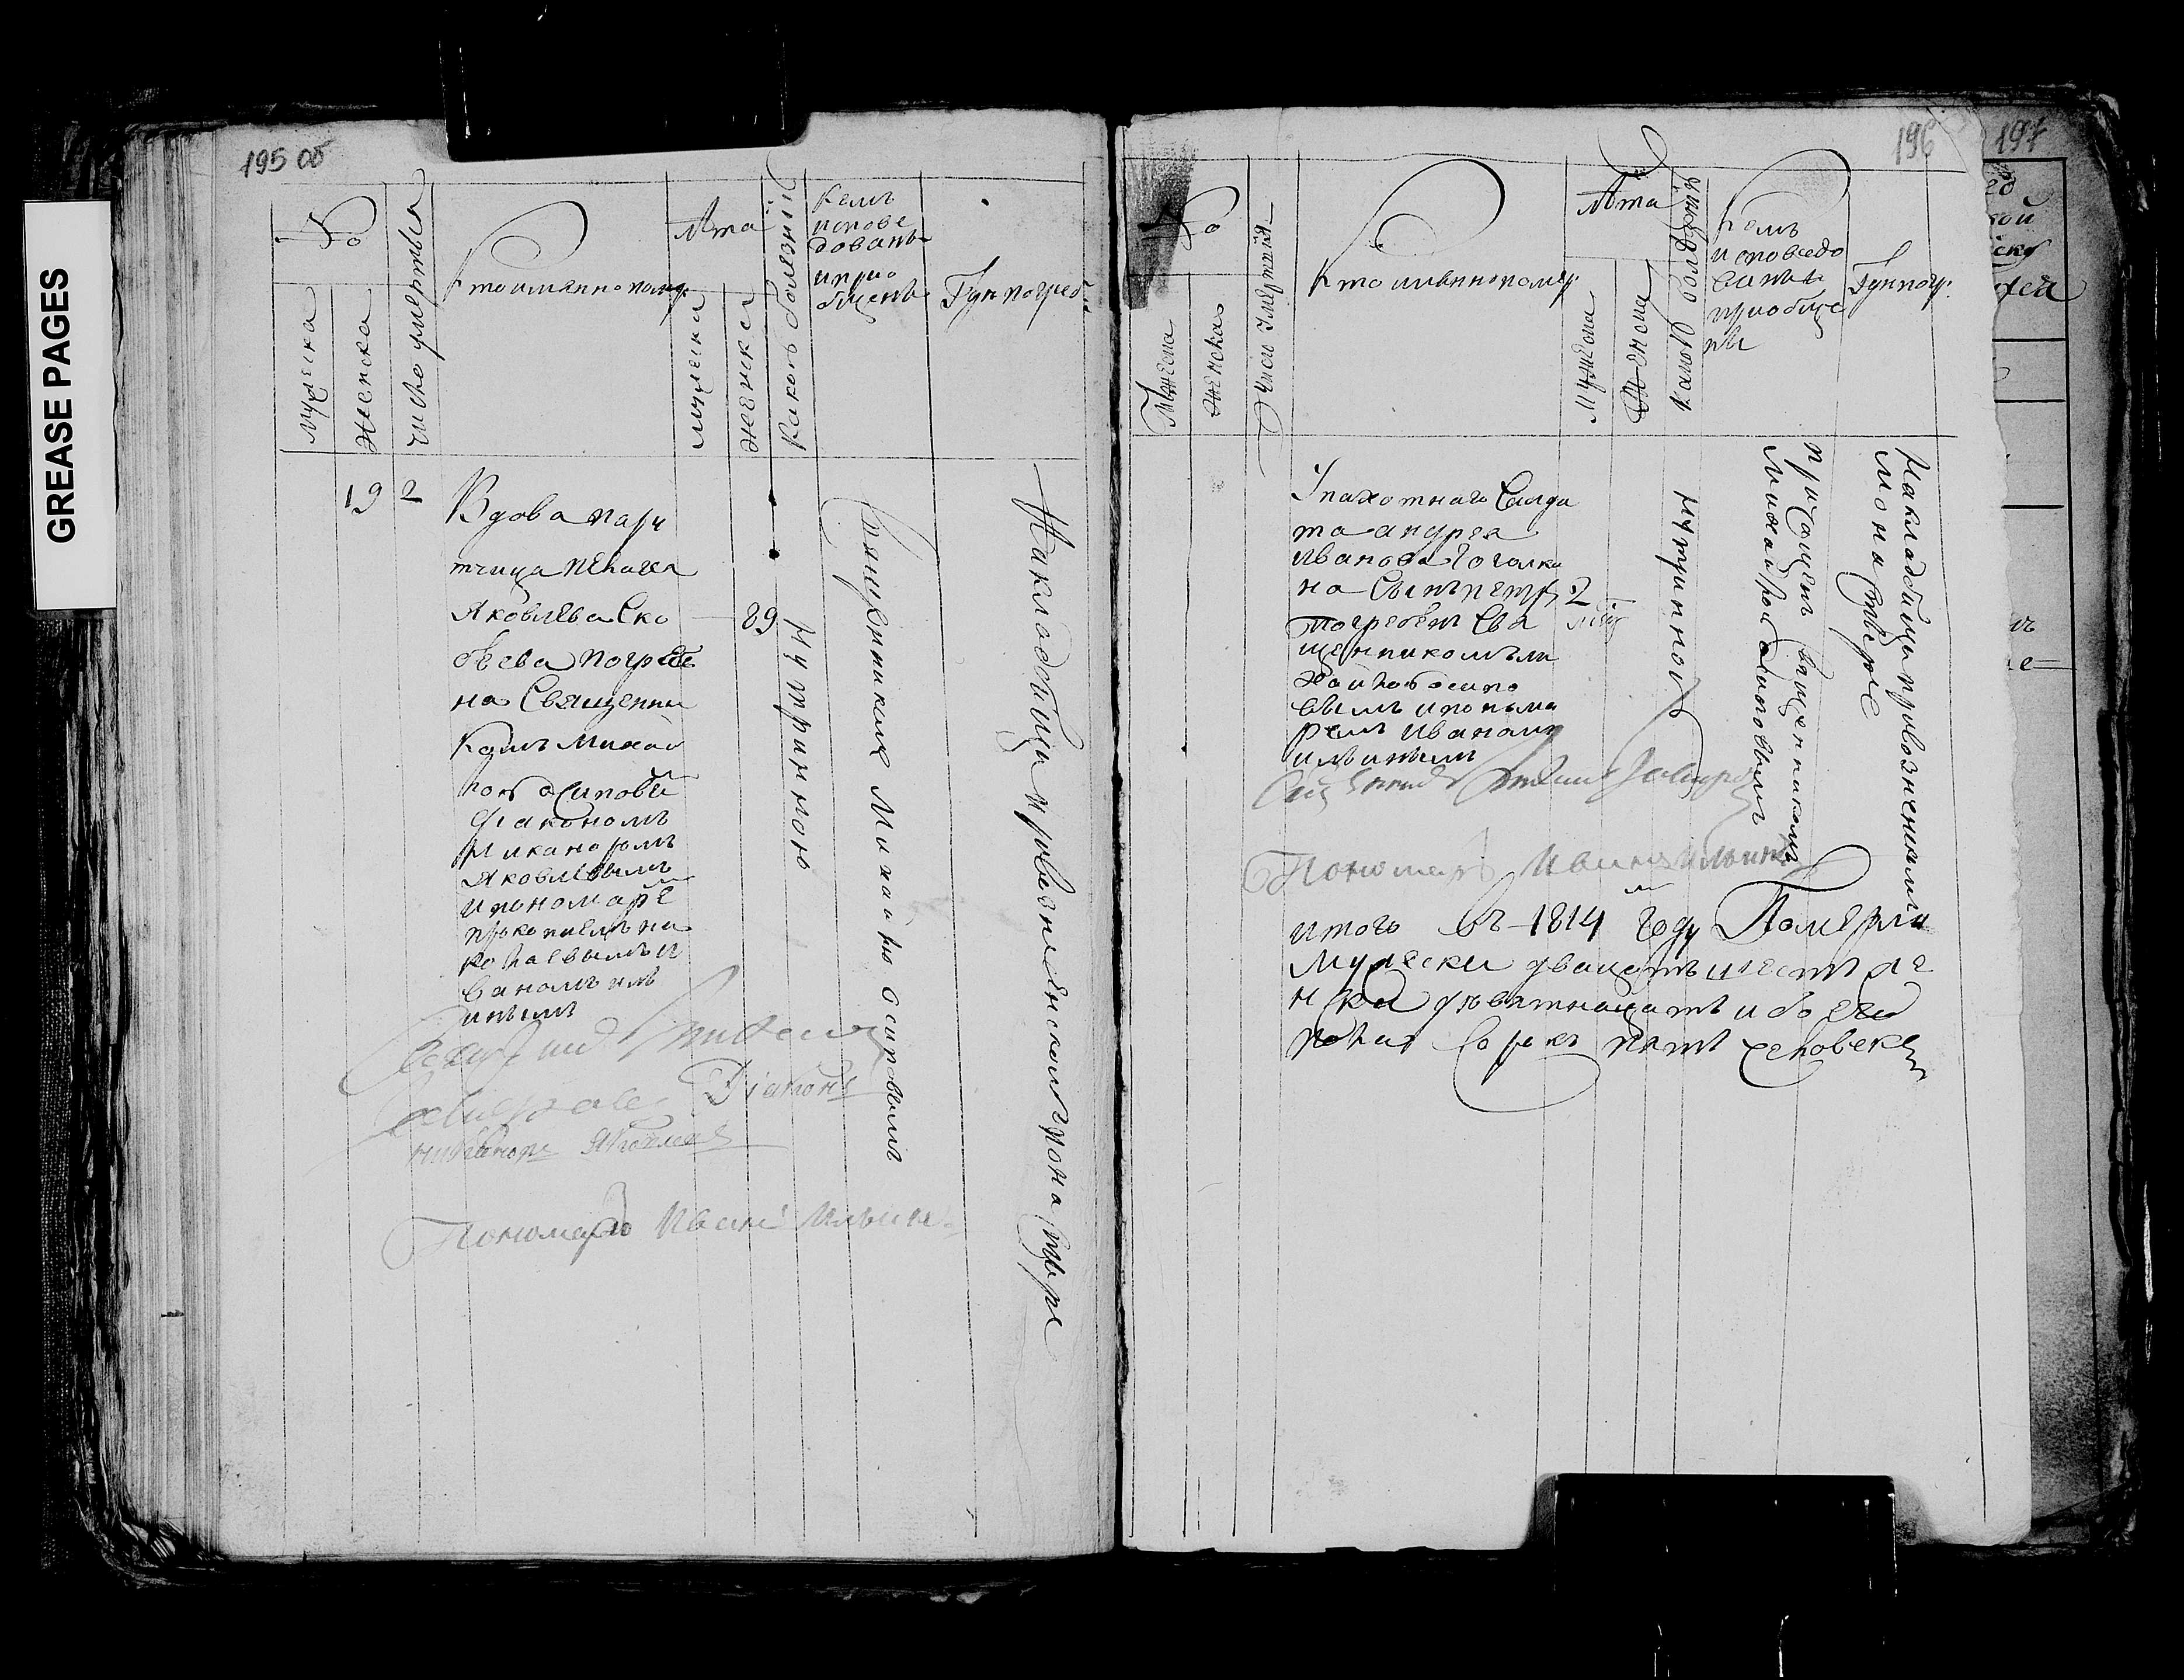 GREASE PAGES
195 об
№
мужеска
женска
число умертвия
Кто имянно помер
Лета
мужеска
женска
Какою болезнию
Кемъ
испове
дованъ
и прио
бщенъ
Где погребе
19 2
Вдова пари
тчица пелагея
Яковлева Ско
89
беева погребе
на Священни
комъ Михаи
ломъ Осиповы
Диакономъ
Никаноромъ
Яковлевымъ
и пономаре
прокопиемъ ни
колаевымъ и
ваномъ иль
инымъ
нутриною
Священникомъ Михаилою Осиповымъ
На кладбищи при вознесенскомъ монастыре
Діаконъ
никаноръ Яковлевъ
Пономарь Иванъ Ильинъ
196
197
№
Мужеска
женская
Число умертвия
Кто имянно помер
Лета
мужеска
женска
Какою болезнию
Кемъ
исповедо
ванъ и
приобще
ны
Где погр
У пахотнаго Салда
та андрея
Иванова
на Сынъ петръ 2
погребенъ Свя
щенникомъ ми
хаиломъ осипо
вымъ и понома
ремъ Иваномъ
ильинымъ
нутриною
приобщенъ Священникомъ
Михаиломъ Осиповымъ
На кладбищи при вознесенскомъ
монастыре
Пономарь Иванъ Ильинъ
итого въ 1814 м году Померли
мужеска дватцать шесть же
нска девятнацать и обоего
пола Сорокъ пять человекъ